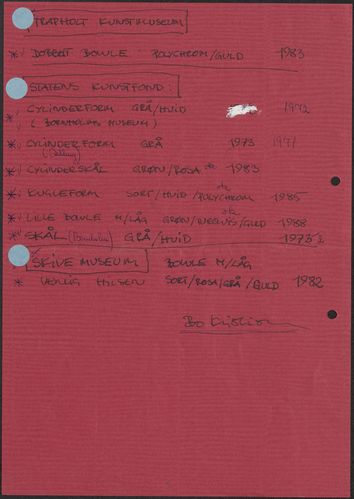 TRAPHOLT KUNSTMUSEUM
* DOBBELT BOWLE POLYCHROM/GULD 1983
STATENS KUNSTFOND:
* CYLINDERFORM GRÅ/HVID 1972
(BORNHOLMS MUSEUM)
* CYLINDERFORM GRÅ 1973 1971
* CYLINDERSKÅL GRØN/ROSA 1983
* KUGLEFORM SORT/HVID/POLYCHROM 1985
* LILLE BOWLE M/LÅG GRØN/ /GULD 1988
* SKÅL GRÅ/HVID 1973
SKIVE MUSEUM BOWLE M/LÅG
* VENLIG HILSEN SORT/ROSA/GRÅ/GULD 1982
Bo Kristiansen